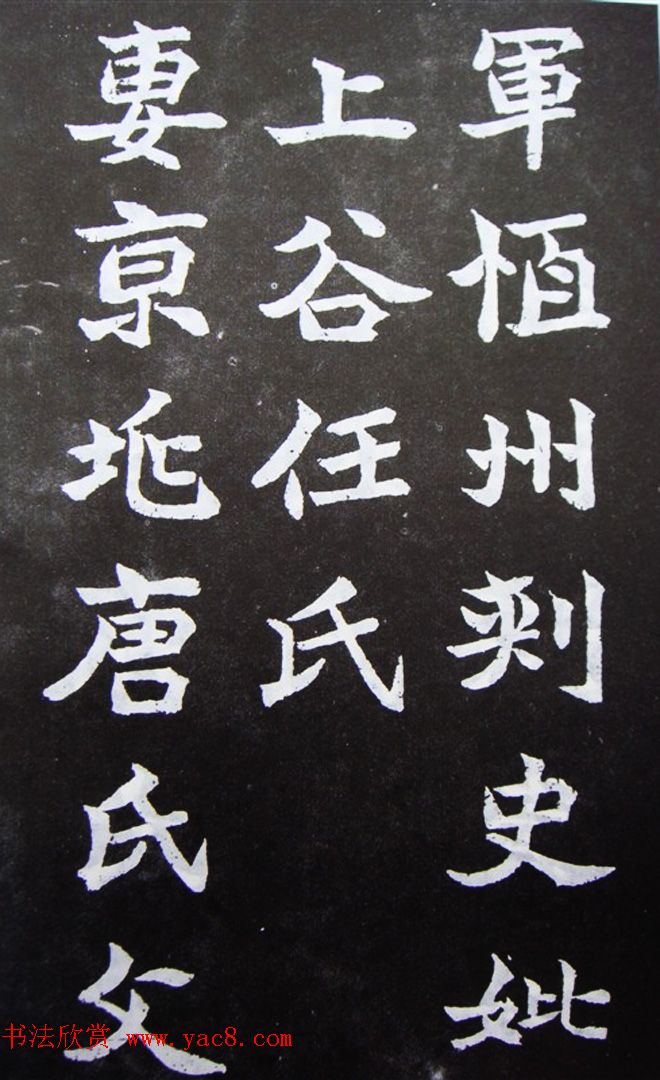 軍恒州刺史妣
上谷任氏
妻亰兆唐氏父
书法欣赏 www.yac8.com